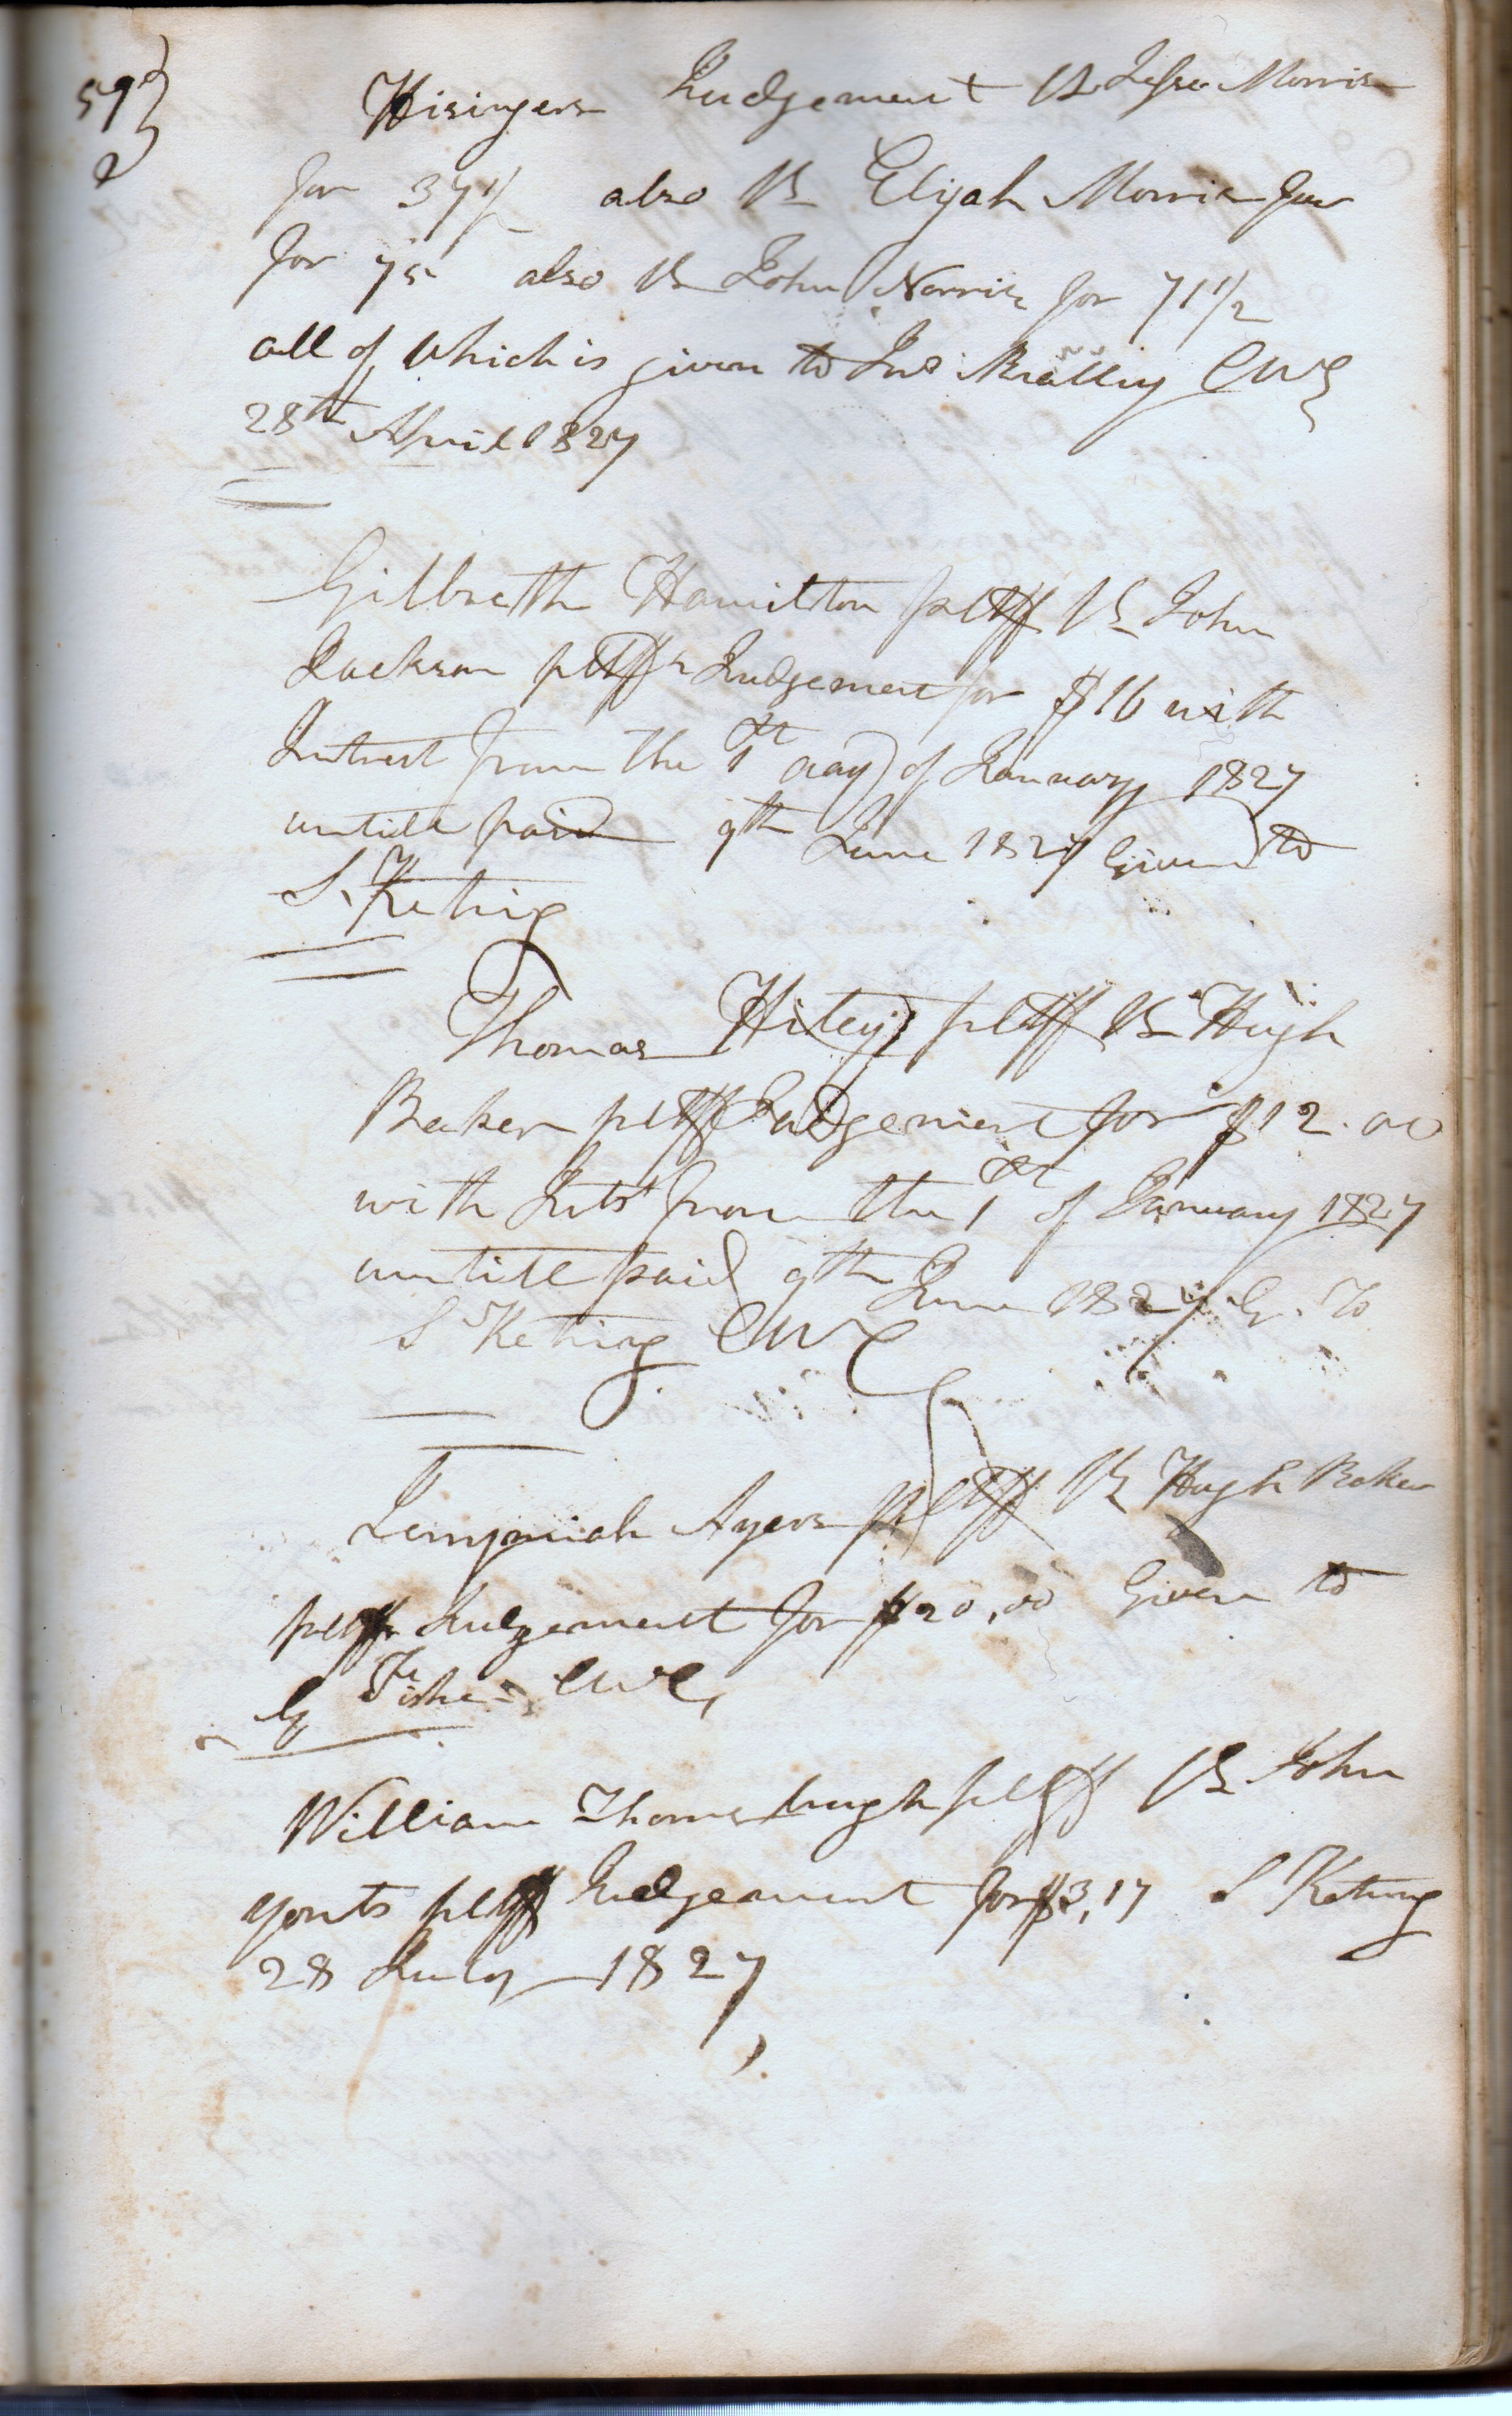 59
Hisingers Judgement Vs Jesse Morris
for 37 1/2 also Vs Elijah Morris Jur
for 75 also Vs John Norris for 71 1/2
all of which is given to Jno CWC
28th April 1827
Gilbreth Hamilton pltff Vs John
Jackson pltffs Judgement for $16 with
Intrest from the 1st day of January 1827
untill paid 9th June 1827 Given to
S. Keting
Thomas Hiley pltff Vs Hugh
Baker pltff Judgement for $12.00
with Intst from the 1st of January 1827
untill paid 9th June 1827 G. To
S Keting CWC
Jerymiah Ayers pltff Vs Hugh Baker
pltffs Judgement for $20,00 Given to
G Fisher CWC
William Thornsbugh pltff Vs John
yonts pltff Judgement for $3,17 S Keting
28 July 1827